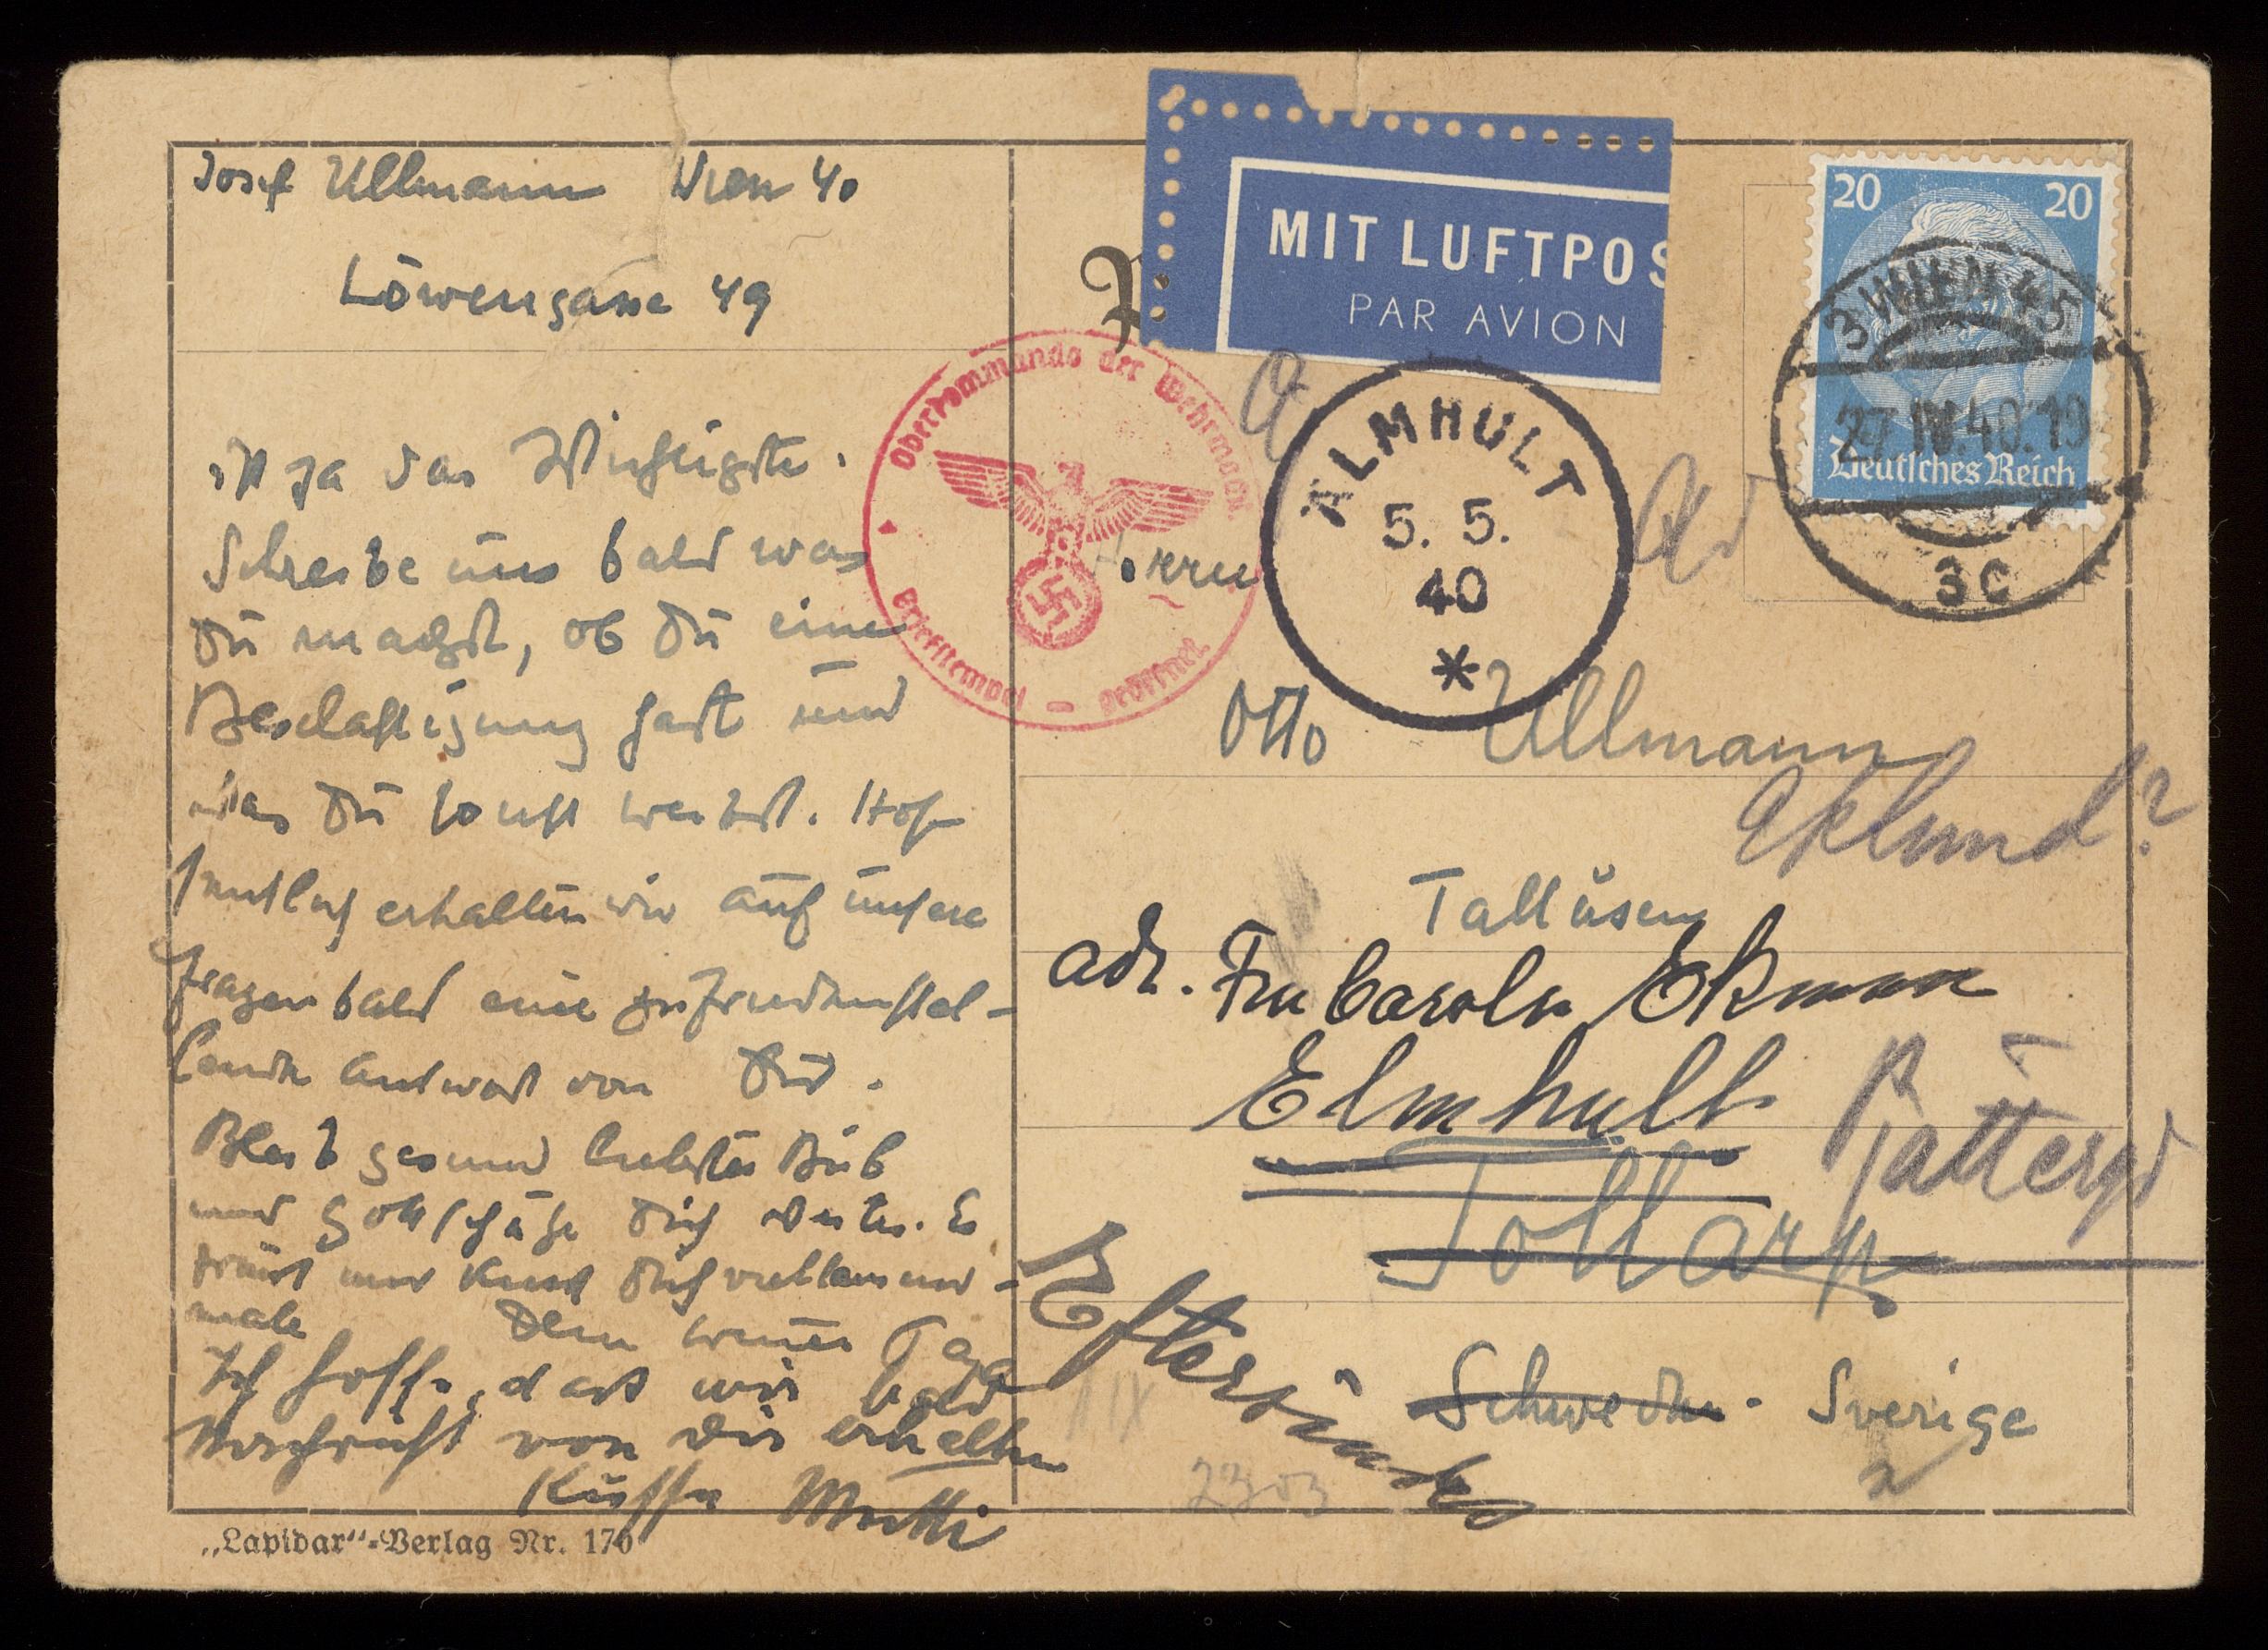 Josef Ullmann Wien 40
Löwengasse 49
ist ja das Wichtigste.
Schreibe uns bald was
Du machst, ob Du eine
Beschäftigung hast und
was Du sonst treibst. Hof-
fentlich erhalten wir auf unsere
Fragen bald eine zufriedenstel-
lende Antwort von Dir.
Bleib gesund liebster Bub
und Gott schütze Dich weiter. Es
grüsst und küsst Dich vieltausend-
male Dein treuer Papa
Ich hoffe, dass wir bald
Nachricht von Dir erhalten
Küsse Mutti
„Lapidar"-Verlag Nr. 170
MIT LUFTPOS
PAR AVION
20 20
Deutsches Reich
3 WIEN 45
27.IV.40.19
3c
Oberkommando der Wehrmacht
Briefstempel - Geöffnet
ALMHULT
5. 5.
40
*
Otto Ullmann
Eklund?
Tallåsen
adr. Fru Carola Ekman
Elmhult
Tollarp
Eftersändes
Schweden. Sverige
2303